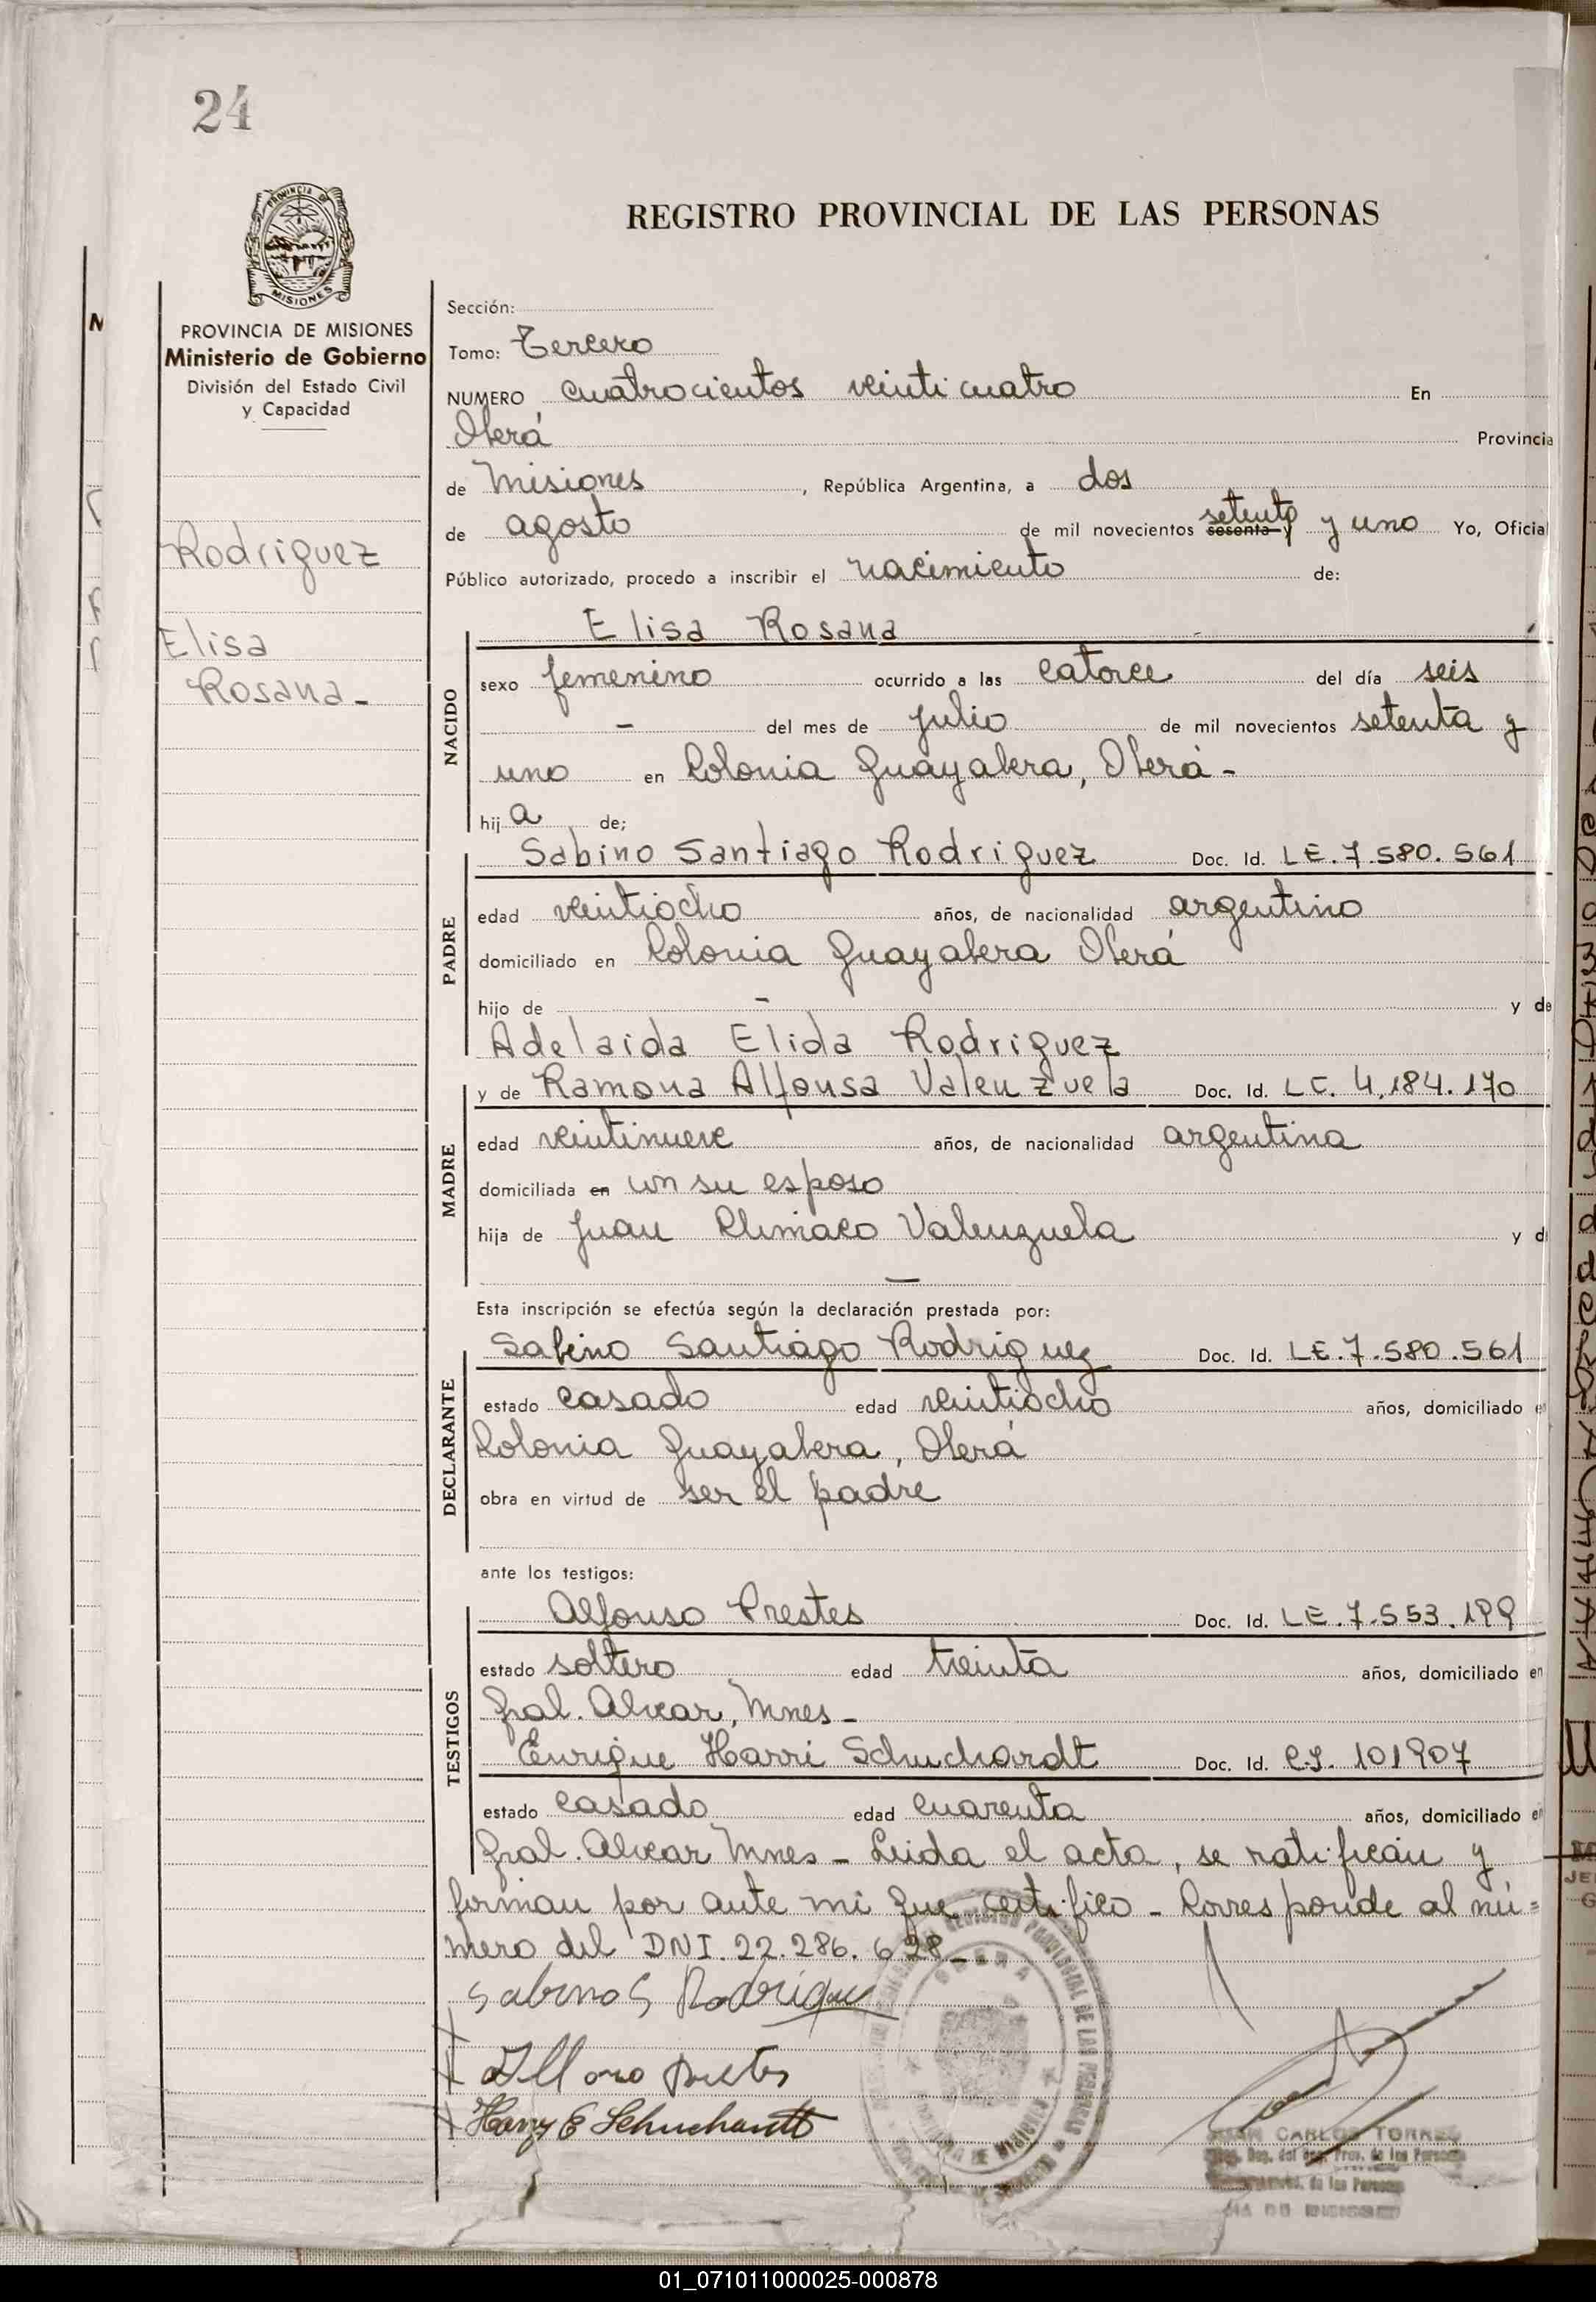 24
PROVINCIA DE
MISIONES
REGISTRO PROVINCIAL DE LAS PERSONAS
PROVINCIA DE MISIONES
Ministerio de Gobierno
División del Estado Civil
y Capacidad
Rodriguez
Elisa
Rosana -
Sección:
Tomo: Tercero
NUMERO cuatrocientos veinticuatro En
Oberá Provincia
de Misiones, República Argentina, a dos
de agosto de mil novecientos sesenta y setenta y uno Yo, Oficial
Público autorizado, procedo a inscribir el nacimiento de:
NACIDO
Elisa Rosana
sexo femenino ocurrido a las catorce del día seis
- del mes de julio de mil novecientos setenta y
uno en Colonia Guayabera, Oberá -
hij a de;
PADRE
Sabino Santiago Rodriguez Doc. Id. LE. 7.580.561
edad veintiocho años, de nacionalidad argentino
domiciliado en Colonia Guayabera Oberá
hijo de - y de
Adelaida Elida Rodriguez
MADRE
y de Ramona Alfonsa Valenzuela Doc. Id. LC. 4.184.170
edad veintinueve años, de nacionalidad argentina
domiciliada en con su esposo
hija de Juan Climaco Valenzuela y d
—
Esta inscripción se efectúa según la declaración prestada por:
DECLARANTE
Sabino Santiago Rodriguez Doc. Id. LE. 7.580.561
estado casado edad veintiocho años, domiciliado e
Colonia Guayabera, Oberá
obra en virtud de ser el padre
ante los testigos:
TESTIGOS
Alfonso Prestes Doc. Id. LE. 7.553.199
estado soltero edad treinta años, domiciliado en
Gral. Alvear, Mnes -
Enrique Harri Schuchardt Doc. Id. CI. 101907
estado casado edad cuarenta años, domiciliado e
Gral. Alvear Mnes - Leida el acta, se ratifican y
firman por ante mi que certifico - Corresponde al nú=
mero del DNI. 22.286.628 -
Sabino S Rodriguez
Harry E Schuchardt
OBERA
PROVINCIAL DE LAS PERSONAS
JUAN CARLOS TORRES
01_071011000025-000878